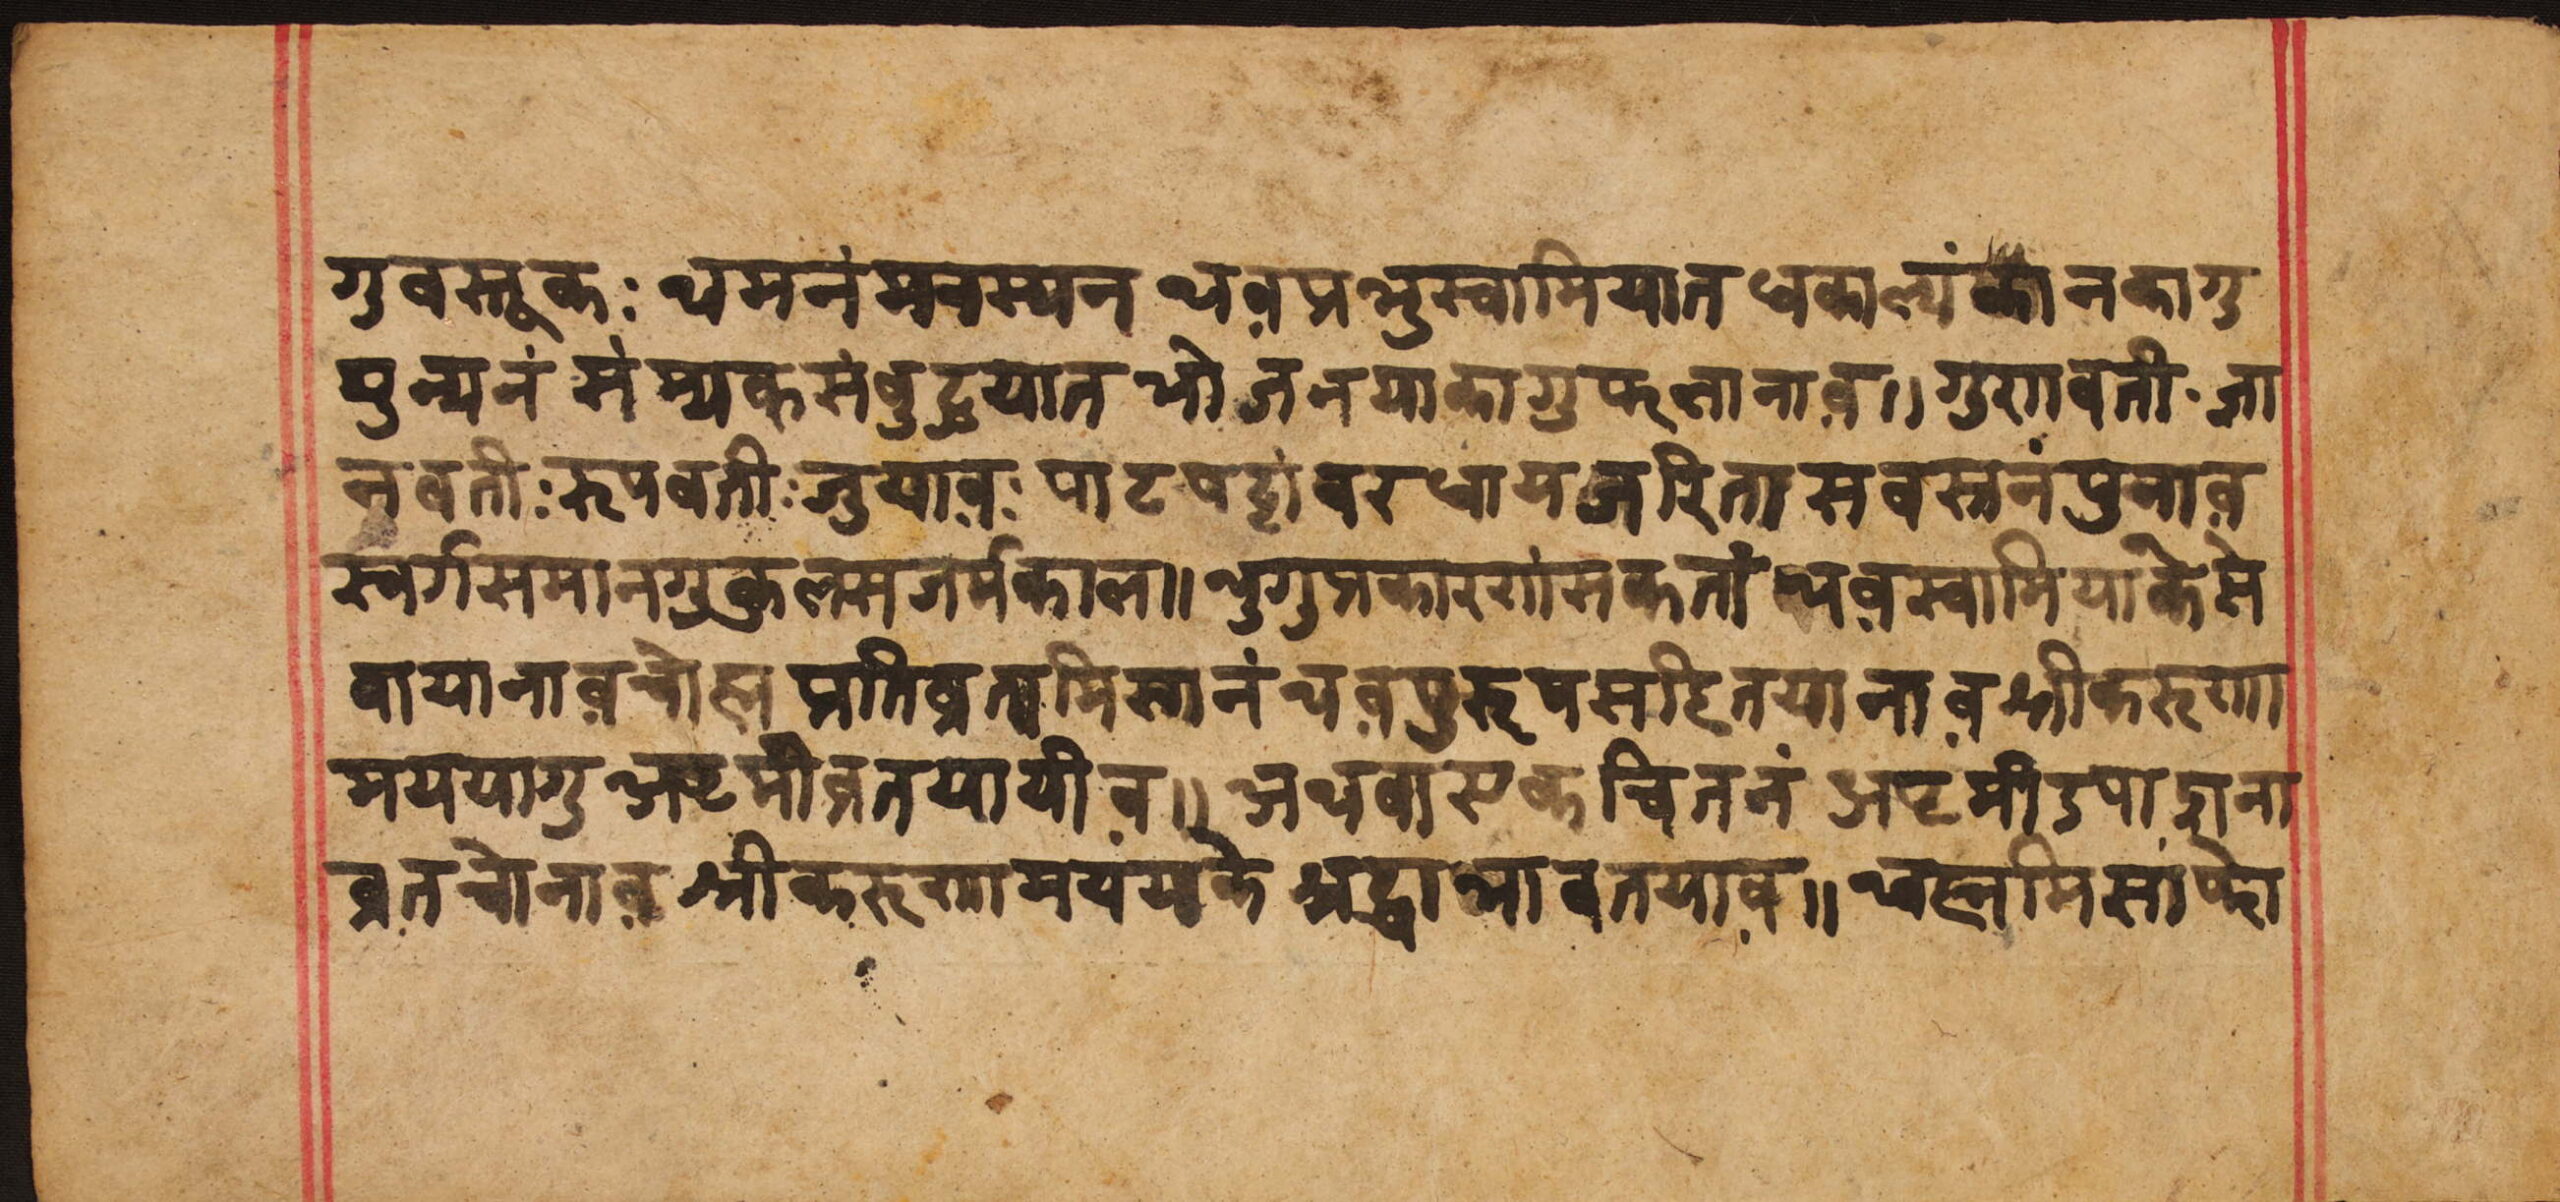 गुवस्तूक: थमनंमवस्यन थव़प्रभुस्वामियात धकाल्यंकानकागु
पुन्यनं संम्यकसंबुद्धयात भोजनयाकागुफलानाव़॥ गुणवती. ज्ञा
नवती: रूपवती: जुयाव़: पाटपट्टांबरधाय जरितासवस्तनंपुनाव़
स्वर्गसमानगुकुलसजर्मकाल॥ थुगुप्रकारणांसकतां थव़स्वामियाकेसे
वायानाव़चोह्म प्रतिब्रत्यमिसानं थव़पुरूषसहितयानाव़ श्रीकरूणा
मययागु अष्टमीब्रतयायीव़॥ अथवा एकचित्तनं अष्टमीउपाढ़ाना
ब्रतचोनाव़ श्रीकरूणामयंयाके श्रद्धाभावतयाव़॥ थह्ममिसांफो